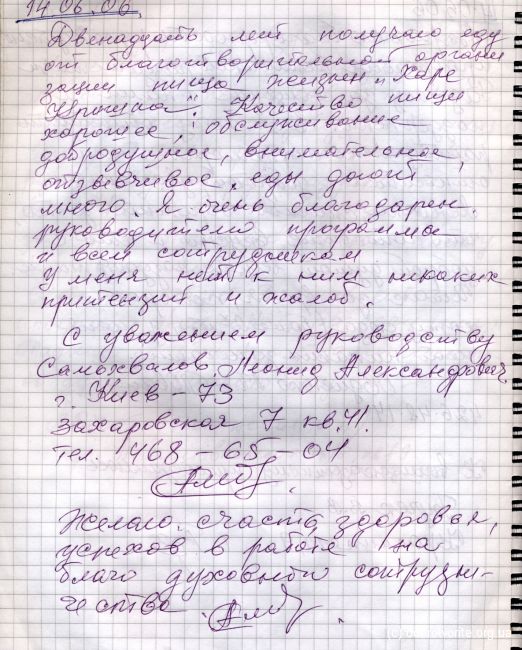 14.06.06.
Двенаддать лет получаю еду
от благотворительной органи
зации пища жизни "Харе
Кришна". Качество пищи
хорошее, обслуживание
добродушное, внимательное,
отзывчивое, еды дают
много. Я очень благодарен.
руководителю программы
и всем сотрудникам
У меня нет к ним никаких
притензий и жалоб.
С уважением руководству
Самохвалов Леонид Александрович,
г. Киев - 73
Захаровская 7 кв. 41.
тел. 468 - 65 - 04
Желаю счастья, здоровья,
успехов в работе на
благо духовного сотрудни-
чества.